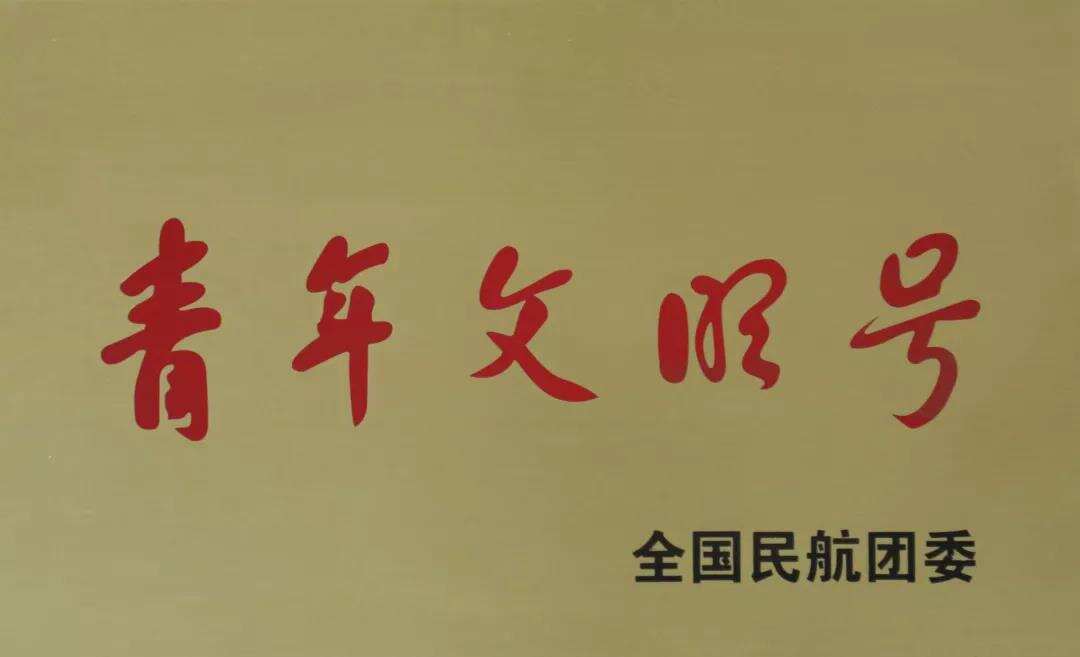 青年文明号
全国民航团委